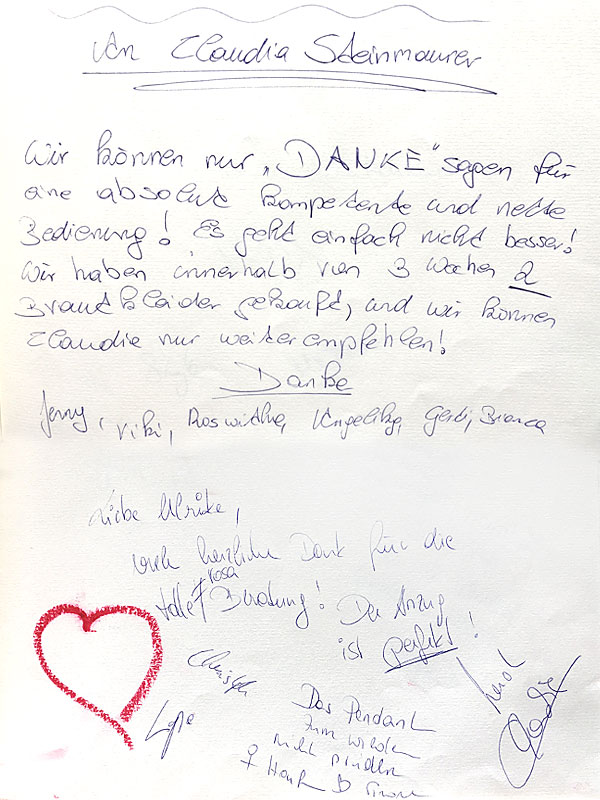 An Claudia Steinmaurer
Wir können nur „DANKE“ sagen für
eine absolut kompetente und nette
Bedienung! Es geht einfach nicht besser!
Wir haben innerhalb von 3 Wochen 2
Brautkleider gekauft, und wir können
Claudia nur weiterempfehlen!
Danke
Jenny, Viki, Roswitha, Angelika, Gerti, Bianca
Liebe Ulrike,
herzlichen Dank für die
rosa
tolle Beratung! Der Anzug
ist perfekt!
Das Pendant
zum
nicht